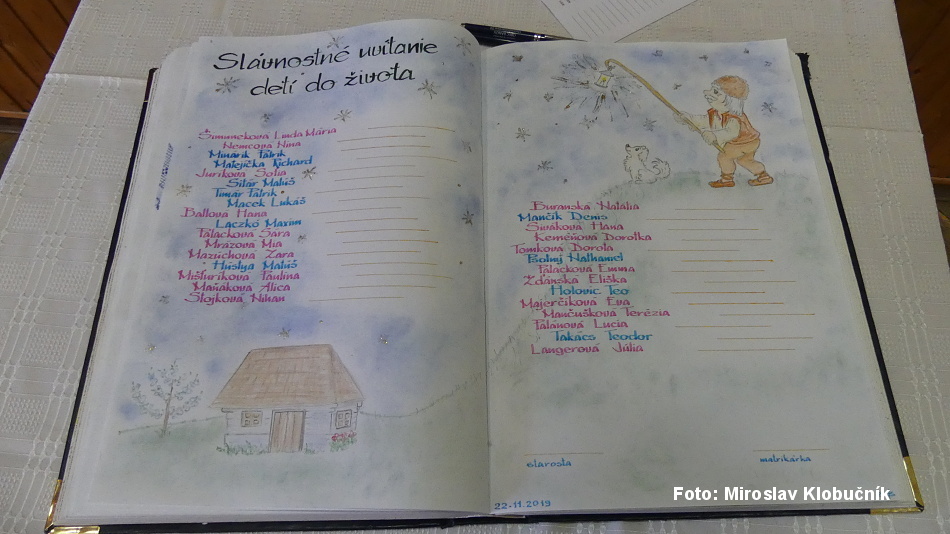 Slávnostné uvítanie
detí do života
Šimuneková Linda Mária
Nemcová Nina
Minárik Patrik
Matejička Richard
Juríková Sofia
Sitár Matúš
Timár Patrik
Macek Lukáš
Ballová Hana
Laczkó Maxim
Palacková Sára
Mrázová Mia
Mazúchová Zara
Hústya Matúš
Mišturíková Paulína
Maňáková Alica
Stojková Ninan
Buranská Natália
Mančík Denis
Siváková Hana
Keméňová Dorotka
Tomková Dorota
Nathaniel
Palacková Emma
Žďánská Eliška
Holovic Teo
Majerčíková Eva
Mančušková Terézia
Palánová Lucia
Takács Teodor
Langerová Júlia
starosta
matrikárka
22-11.2019
Foto: Miroslav Klobučník